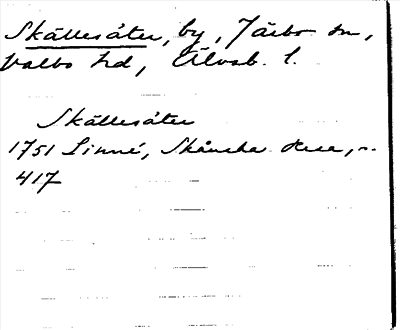 Skällesäter, by, Järbo sn,
Valbo hd, Älvsb. l.
Skällesäter
1751 Linné, Skånska resa, s.
417